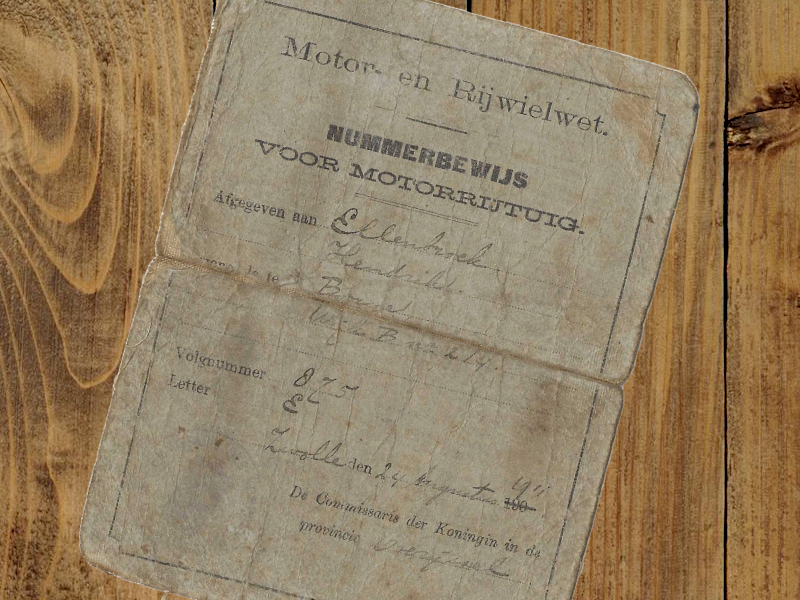 Motor- en Rijwielwet.
NUMMERBEWIJS
VOOR MOTORRIJTUIG.
Afgegeven aan Ellenbroek
Hendrik.
te
Wijk B
Volgnummer 875
Letter E
Zwolle den 24 Augustus 1911
De Commissaris der Koningin in de
provincie Overijssel